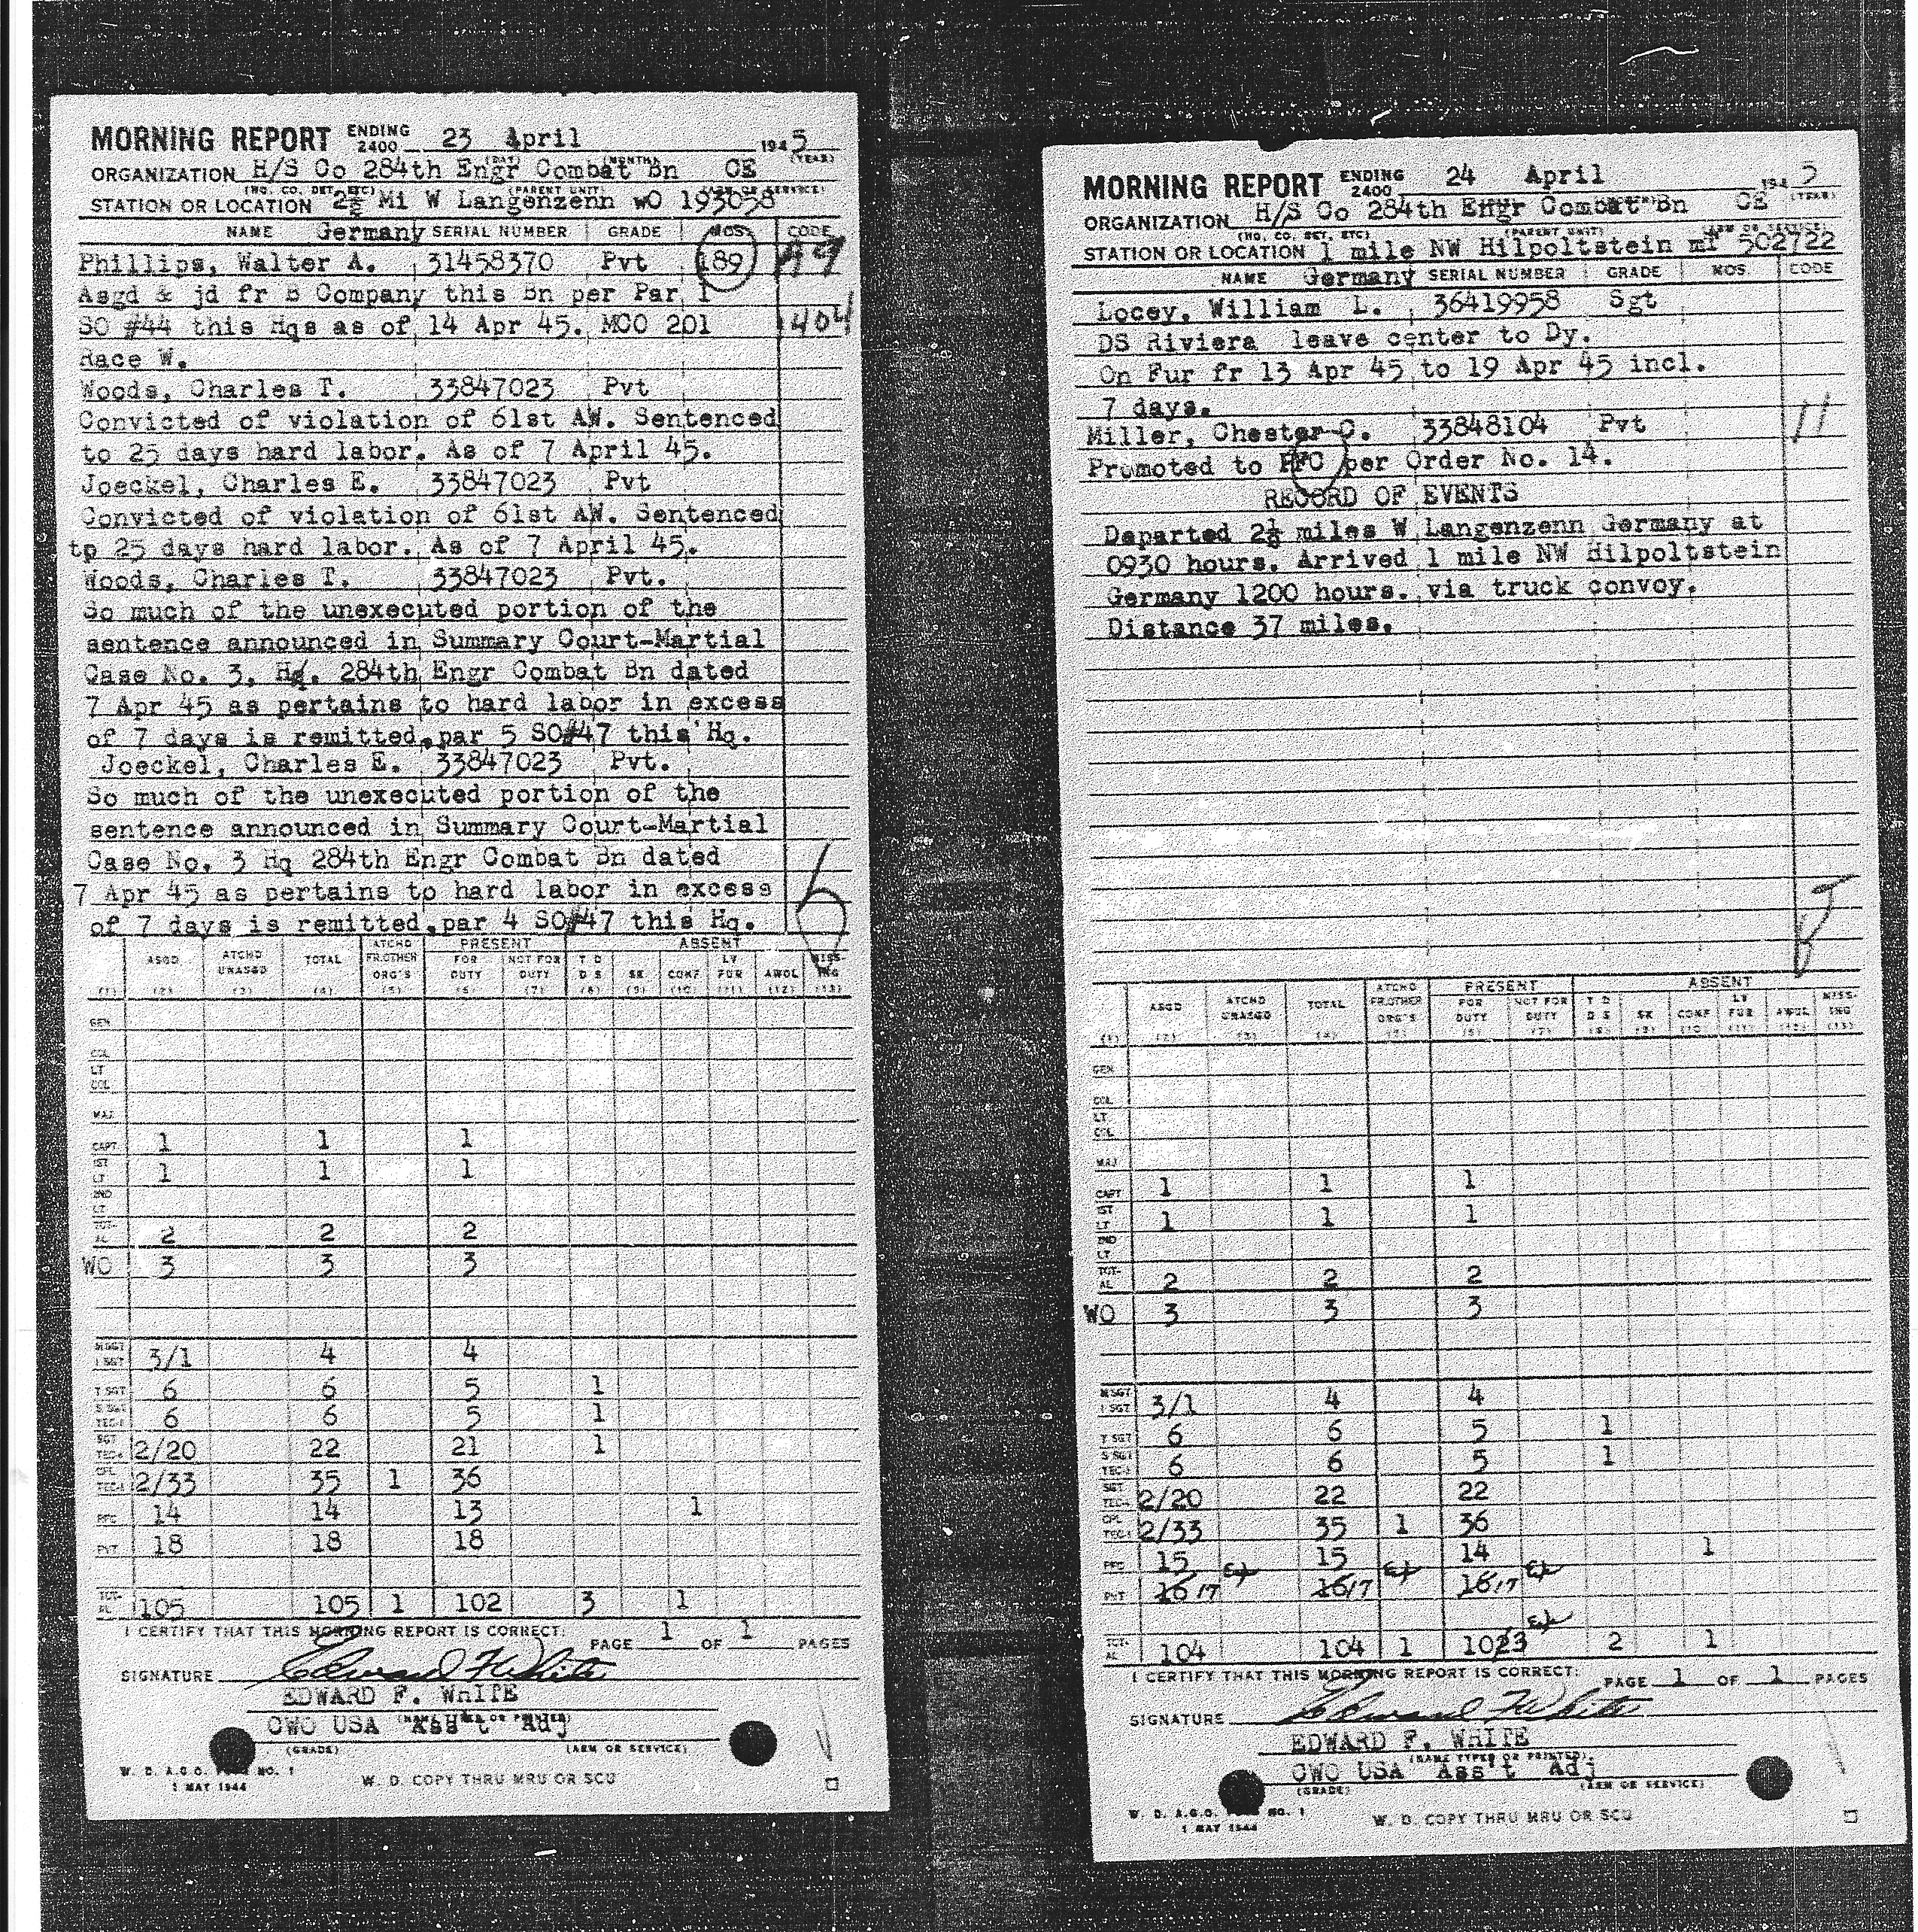 MORNING REPORT ENDING 2400 23 April 1945
(DAY) (MONTH) (YEAR)
ORGANIZATION H/S Co 284th Engr Combat Bn CE
(HQ. CO. DET. ETC) (PARENT UNIT) (ARM OR SERVICE)
STATION OR LOCATION 2½ Mi W Langenzenn wO 193058
Germany
NAME SERIAL NUMBER GRADE MOS. CODE
Phillips, Walter A. 31458370 Pvt 189 A9
Asgd & jd fr B Company this Bn per Par 1
SO #44 this Hqs as of 14 Apr 45. MCO 201 1404
Race W.
Woods, Charles T. 33847023 Pvt
Convicted of violation of 61st AW. Sentenced
to 25 days hard labor. As of 7 April 45.
Joeckel, Charles E. 33847023 Pvt
Convicted of violation of 61st AW. Sentenced
tp 25 days hard labor. As of 7 April 45.
Woods, Charles T. 33847023 Pvt.
So much of the unexecuted portion of the
sentence announced in Summary Court-Martial
Case No. 3, Hq. 284th Engr Combat Bn dated
7 Apr 45 as pertains to hard labor in excess
of 7 days is remitted, par 5 SO#47 this Hq.
Joeckel, Charles E. 33847023 Pvt.
So much of the unexecuted portion of the
sentence announced in Summary Court-Martial
Case No. 3 Hq 284th Engr Combat Bn dated
7 Apr 45 as pertains to hard labor in excess
of 7 days is remitted, par 4 SO#47 this Hq.
ATCHD PRESENT ABSENT
ASGD ATCHD UNASGD TOTAL FR.OTHER ORG'S FOR DUTY NOT FOR DUTY T D D S SK CONF LV FUR AWOL MISSING
(1) (2) (3) (4) (5) (6) (7) (8) (9) (10) (11) (12) (13)
GEN
COL
LT COL
MAJ
CAPT 1 1 1
1ST LT 1 1 1
2ND LT
TOTAL 2 2 2
WO 3 3 3
M SGT 1 SGT 3/1 4 4
T SGT 6 6 5 1
S SGT TEC-3 6 6 5 1
SGT TEC-4 2/20 22 21 1
CPL TEC-5 2/33 35 1 36
PFC 14 14 13 1
PVT 18 18 18
TOTAL 105 105 1 102 3 1
I CERTIFY THAT THIS MORNING REPORT IS CORRECT: PAGE 1 OF 1 PAGES
SIGNATURE Edward F White
EDWARD F. WHITE
CWO USA Ass't Adj
(NAME TYPED OR PRINTED)
(GRADE) (ARM OR SERVICE)
W. D. A.G.O. FORM NO. 1
1 MAY 1944
W. D. COPY THRU MRU OR SCU
MORNING REPORT ENDING 2400 24 April 1945
(YEAR)
ORGANIZATION H/S Co 284th Engr Combat Bn CE
(HQ. CO. DET. ETC) (PARENT UNIT) (ARM OR SERVICE)
STATION OR LOCATION 1 mile NW Hilpoltstein mT 502722
Germany
NAME SERIAL NUMBER GRADE MOS. CODE
Locey, William L. 36419958 Sgt
DS Riviera leave center to Dy.
On Fur fr 13 Apr 45 to 19 Apr 45 incl.
7 days.
Miller, Chester C. 33848104 Pvt 11
Promoted to PFC per Order No. 14.
RECORD OF EVENTS
Departed 2½ miles W Langenzenn Germany at
0930 hours. Arrived 1 mile NW Hilpoltstein
Germany 1200 hours. via truck convoy.
Distance 37 miles.
ATCHD PRESENT ABSENT
ASGD ATCHD UNASGD TOTAL FR.OTHER ORG'S FOR DUTY NOT FOR DUTY T D D S SK CONF LV FUR AWOL MISSING
(1) (2) (3) (4) (5) (6) (7) (8) (9) (10) (11) (12) (13)
GEN
COL
LT COL
MAJ
CAPT 1 1 1
1ST LT 1 1 1
2ND LT
TOTAL 2 2 2
WO 3 3 3
M SGT 1 SGT 3/1 4 4
T SGT 6 6 5 1
S SGT TEC-3 6 6 5 1
SGT TEC-4 2/20 22 22
CPL TEC-5 2/33 35 1 36
PFC 15 15 14 1
PVT 16 17 16 17 16 17
TOTAL 104 104 1 1023 2 1
I CERTIFY THAT THIS MORNING REPORT IS CORRECT: PAGE 1 OF 1 PAGES
SIGNATURE Edward F White
EDWARD F. WHITE
(NAME TYPED OR PRINTED)
CWO USA Ass't Adj
(GRADE) (ARM OR SERVICE)
W. D. A.G.O. FORM NO. 1
1 MAY 1944
W. D. COPY THRU MRU OR SCU